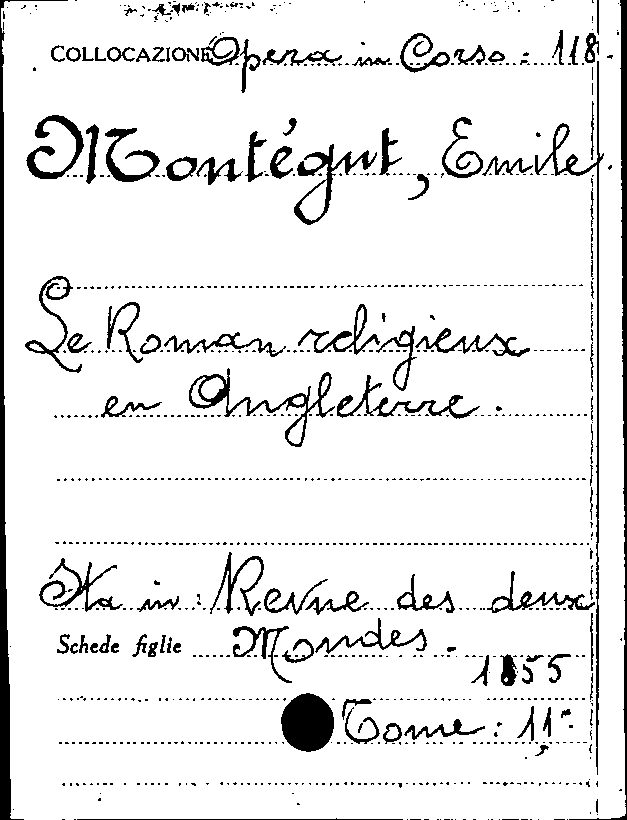 COLLOCAZIONE Opera in Corso : 118.
Montégut, Emile.
Le Roman religieux
en Angleterre.
Sta in : Revue des deux
Schede figlie Mondes.
1855
Tome : 11°